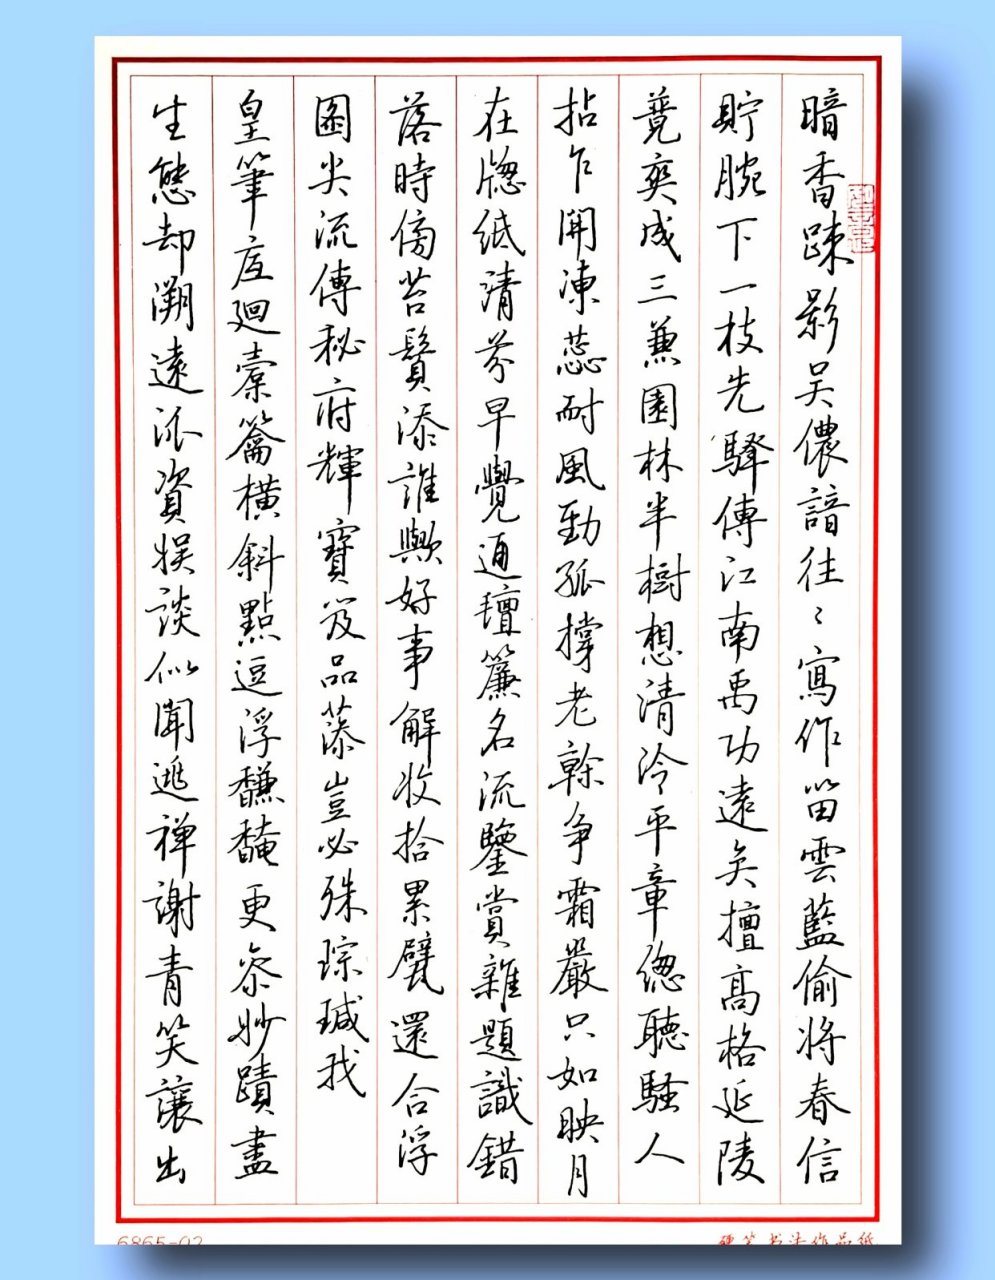 暗香踈影吴儂諳往〻寫作笛雲藍偷將春信
貯腕下一枝先驛傳江南禹功遠矣擅高格延陵
竟奕成三兼園林半樹想清泠平章總聽騷人
拈乍開凍蕊耐風勁孤撑老榦争霜嚴只如映月
在牕紙清芬早覺通璮簾名流鑒賞雜題識錯
落時傍苔鬢添誰歟好事解收拾累甓還合浮
圖尖流傳秘府輝寶笈品蔡豈必殊琮瑊我
皇筆底廻橐籥橫斜點逗浮馦馣更叅妙蹟盡
生態却溯遠派資娱談似聞逃禪謝青笑讓出
6865-02
硬笔书法作品纸